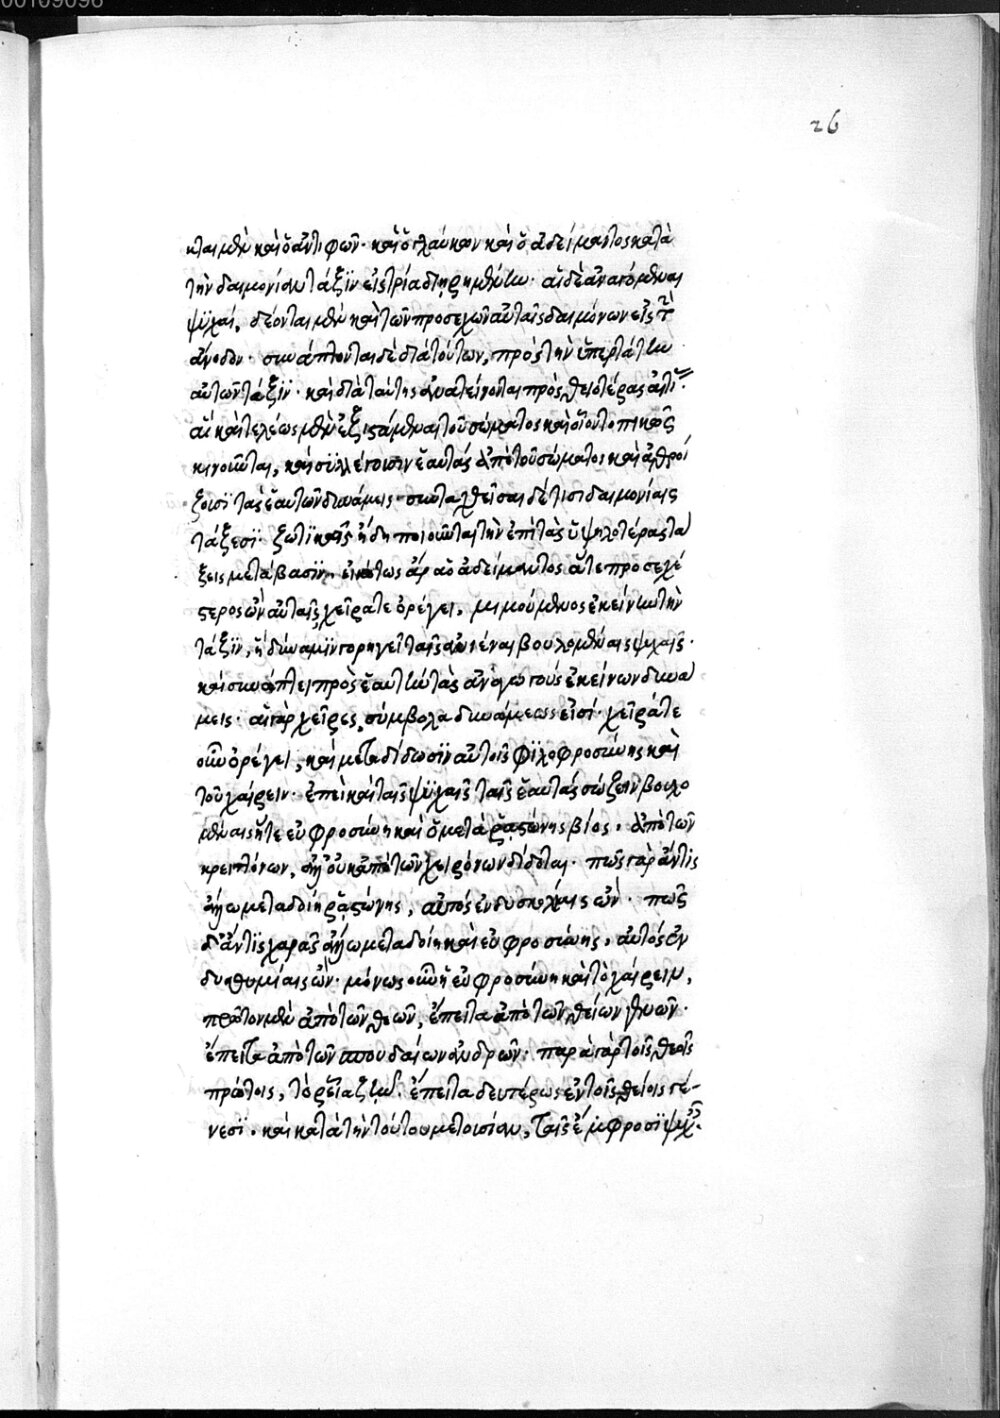 00109096
26
κται μὲν καὶ ὁ ἀντιφῶν· καὶ ὁ γλαύκων καὶ ὁ ἀδείμαντος κατὰ
τὴν δαιμονίαν τάξϊν εἰς τρία διῃρημένην· αἱ δὲ ἀναγόμεναι
ψϋχαί, δέονται μὲν καὶ τῶν προσεχῶν αὐταῖς δαιμόνων εἰς τὴν
ἄνοδον· συνάπτονται δὲ διὰ τούτων, πρὸς τὴν ὑπερτάτην
αὐτῶν τάξϊν· καὶ διὰ ταύτης ἀνατείνονται πρὸς θειοτέρας αἰτί
αἱ καὶ τελέως μὲν ἐξιστάμεναι τοῦ σώματος καὶ οἷον τοπικῶς
κινοῦνται, καὶ συλλέγουσιν ἑαυτὰς ἀπὸ τοῦ σώματος καὶ ἀθροί
ζουσϊ τὰς ἑαυτῶν δυνάμεις· συνταχθεῖσαι δέ τισι δαιμονίαις
τάξεσϊ· ζωτϊκῶς ἤδη ποιοῦνται τὴν ἐπὶ τὰς ὑψηλοτέρας τά
ξεις μετάβασϊν· εἰκότως ἄρα ὁ ἀδείμαντος ἅτε προσεχέ
στερος ὢν αὐταῖς, χεῖρά τε ὀρέγει, μιμούμενος ἐκείνην τὴν
τάξϊν, ἣ δύναμϊν χορηγεῖ ταῖς ἀνιέναι βουλομέναις ψυχαῖς·
καὶ συνάπτει πρὸς ἑαυτὴν τὰς ἀναγωγοὺς ἐκείνων δυνά
μεις· αἱ γὰρ χεῖρες, σύμβολα δυνάμεως εἰσί· χεῖρά τε
οὖν ὀρέγει, καὶ μεταδίδωσϊν αὐτοῖς φϊλοφροσύνης καὶ
τοῦ χαίρειν· ἐπεὶ καὶ ταῖς ψϋχαῖς ταῖς ἑαυτὰς σώζειν βουλο
μέναις ἥτε εὐφροσύνη καὶ ὁ μετὰ ῥᾳστώνης βίος, ἀπὸ τῶν
κρειττόνων, ἀλλ' οὐκ ἀπὸ τῶν χειρόνων δίδοται· πῶς γὰρ ἄν τις
ἄλλῳ μεταδοίη ῥᾳστώνης, αὐτὸς ἐν δυσκολίαις ὤν· πῶς
δ' ἄν τις χαρᾶς ἄλλῳ μεταδοίη καὶ εὐφροσύνης, αὐτὸς ἐν
δυσθυμίαις ὤν· μόνως οὖν ἡ εὐφροσύνη καὶ τὸ χαίρειν,
πρῶτον μὲν ἀπὸ τῶν θεῶν, ἔπειτα ἀπὸ τῶν θείων γενῶν·
ἔπειτα ἀπὸ τῶν σπουδαίων ἀνδρῶν· παρὰ γὰρ τοῖς θεοῖς
πρώτοις, τὸ ῥεῖα ζῆν· ἔπειτα δευτέρως ἐν τοῖς θείοις γέ-
νεσϊ· καὶ κατὰ τὴν τούτου μετουσίαν, ταῖς ἔμφροσϊ ψυχ